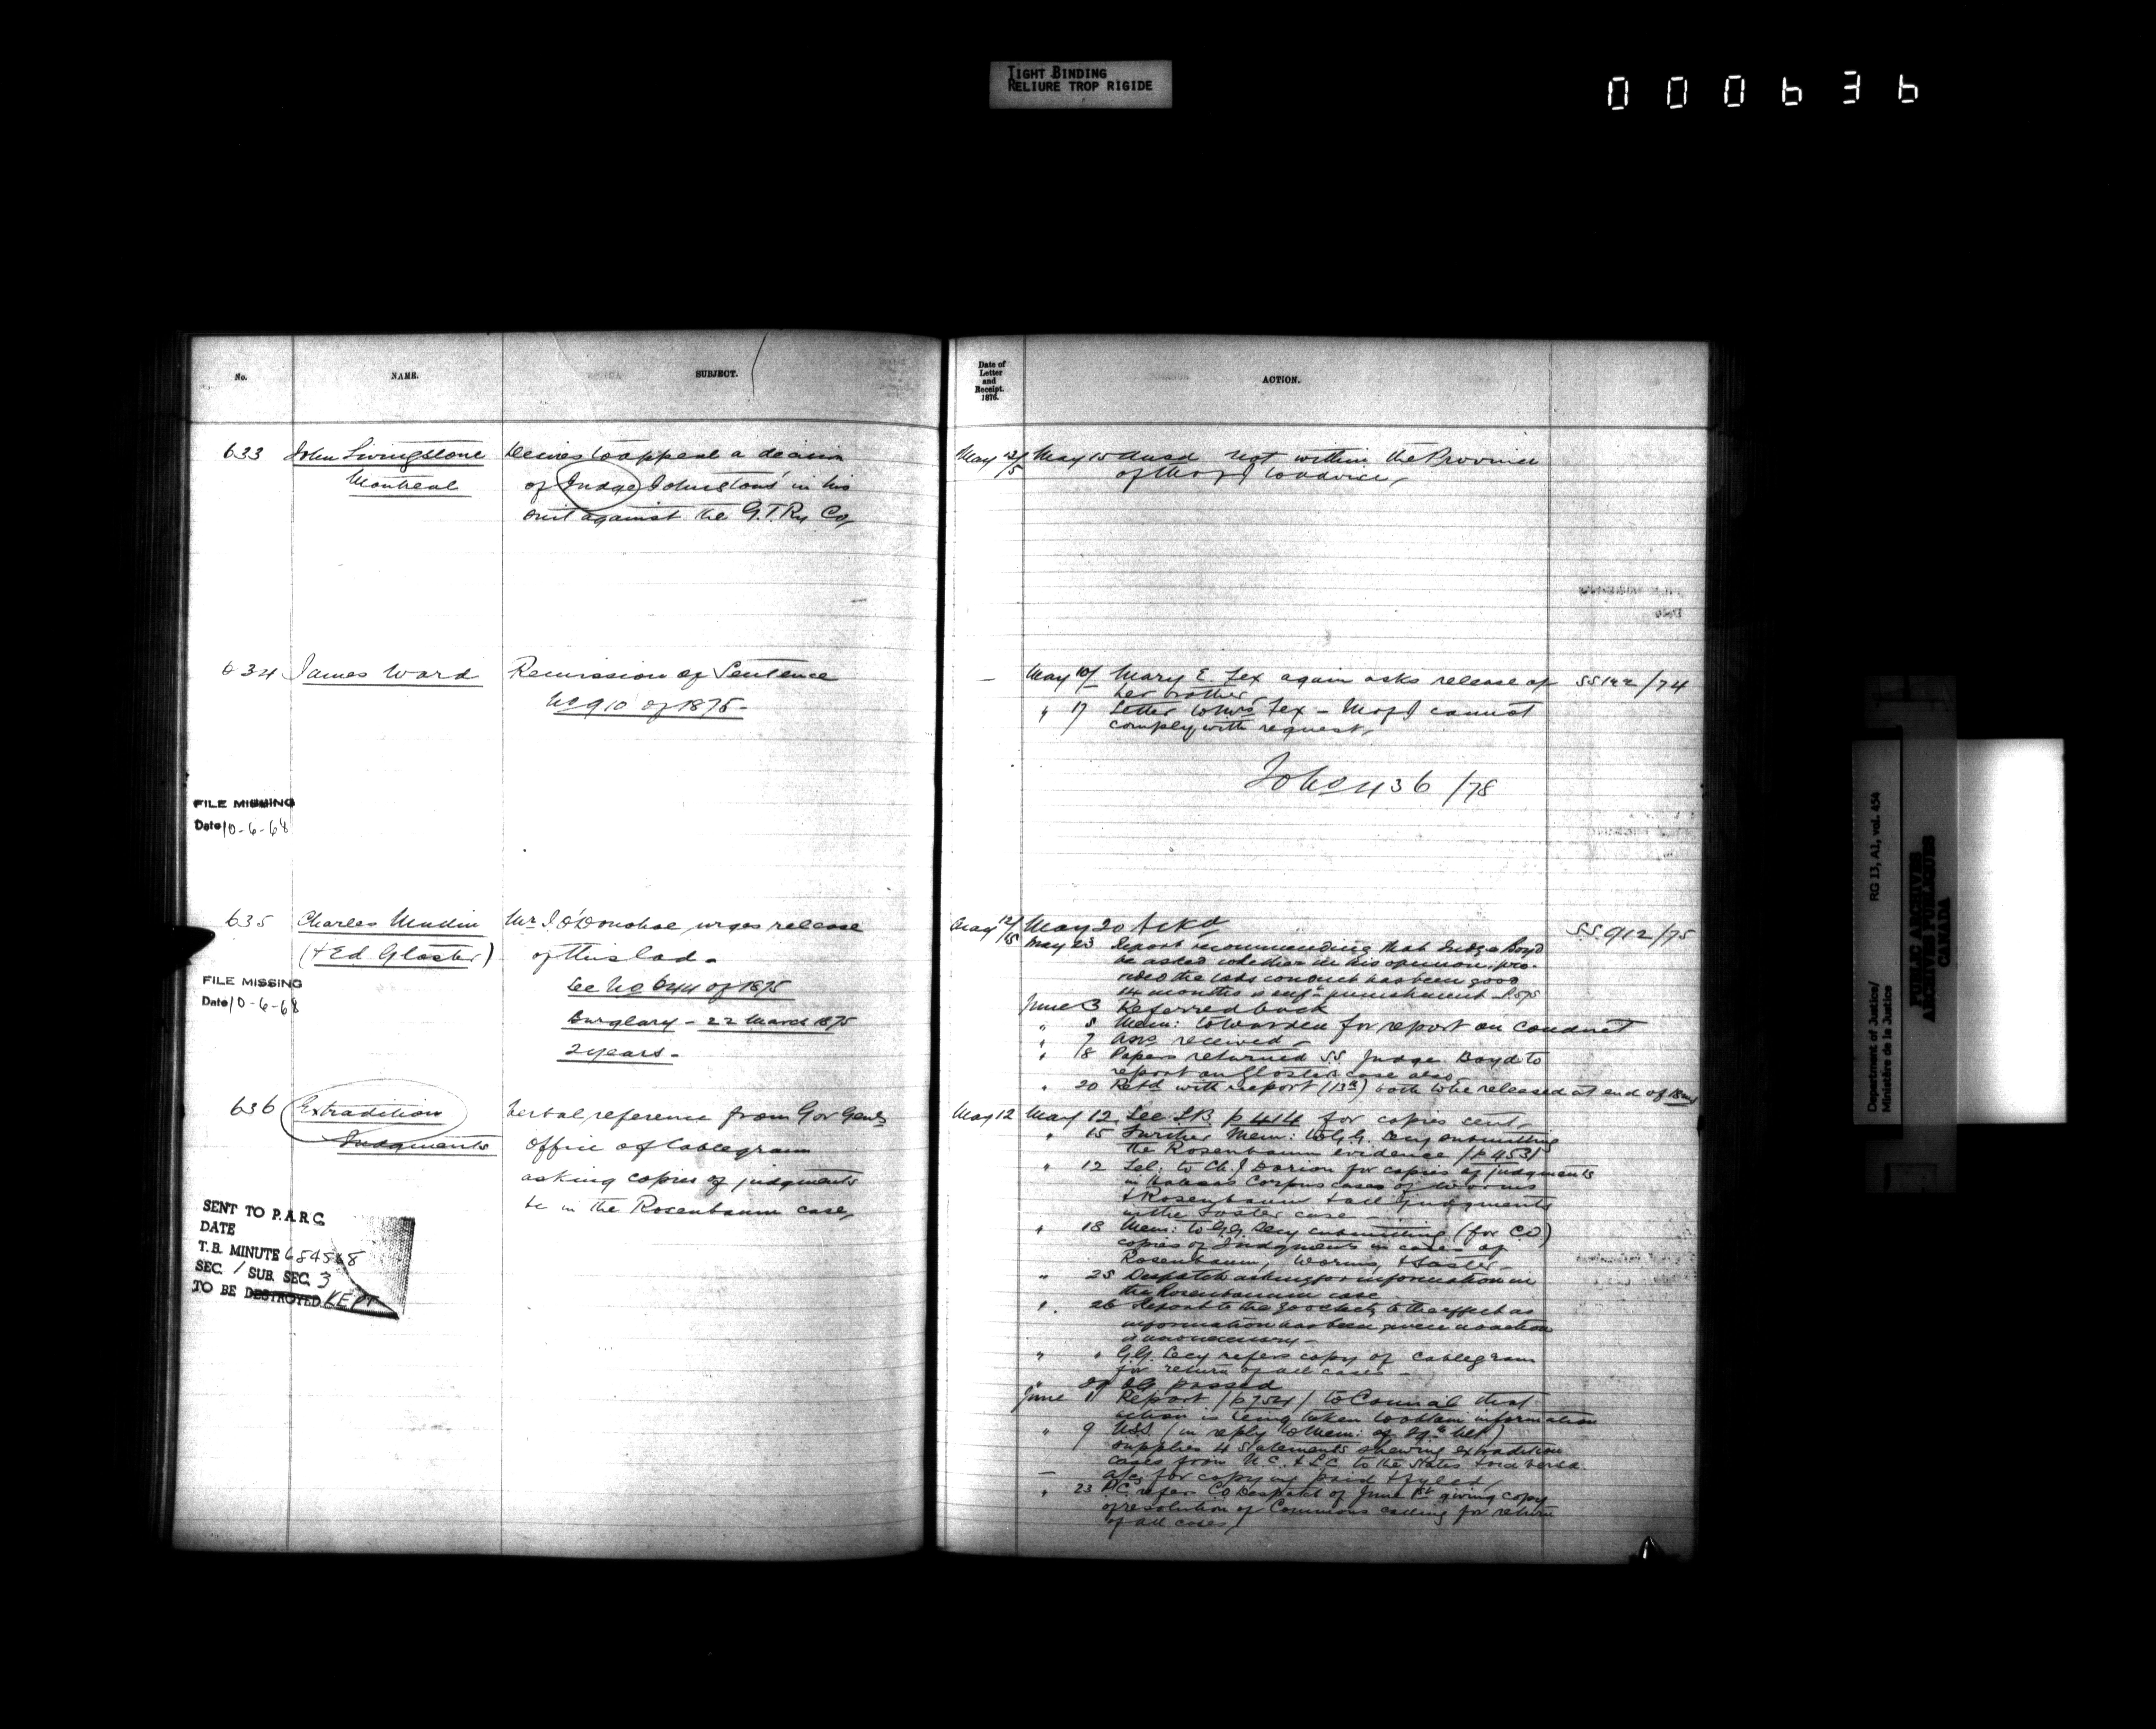 TIGHT BINDING
RELIURE TROP RIGIDE
000636
No. NAME. SUBJECT.
633 John Livingstone Desires to appeal a decision
Montreal of Judge Johnston's in his
suit against the G.T. Ry Co,
634 James Ward Remission of Sentence
No 910 of 1875-
FILE MISSING
Date 10-6-68
635 Charles Mullin Mr J. O'Donohoe, urges release
(& Ed Gloster) of this lad.
FILE MISSING
Date 10-6-68
See No 644 of 1875
Burglary - 22 March 1875
2 years -
636 Extradition Verbal reference from Gov Genls
Judgments Office of Cablegram
asking copies of judgments
&c in the Rosenbaum case,
SENT TO P.A.R.C.
DATE
T.B. MINUTE 654568
SEC. 1 SUB. SEC. 3
TO BE DESTROYED KEPT
Date of
Letter
and
Receipt.
1876.
ACTION.
May 12/15 May 15 Ansd not within the Province
of M of J to advise,
- May 10/ Mary E. Fex again asks release of SS 122/74
her brother
" 17 Letter to Mrs Fex - M of J cannot
comply with request,
To No 436/78
May 12/15 May 20 Ackd S.S. 912/75
May 23 Report recommending that Judge Boyd
be asked whether in his opinion, pro-
vided the lads conduct has been good
14 months is sufft punishment
June 3 Referred back
" 5 Mem: to Warden for report on conduct
" 7 Ansr received -
" 18 Papers returned SS. Judge Boyd to
report on Gloster case also
" 20 Retd with report (13th) both to be released at end of 18 ms
May 12 May 12. See L.B. p 414 for copies sent,
" 15 Further Mem: to G.G. Secy submitting
the Rosenbaum evidence (p 453)
" 12 Tel: to Ch. J Dorion for copies of judgments
in Habeas Corpus cases of Worms
& Rosenbaum & all judgments
in the Foster case
" 18 Mem: to G.G. Secy submitting (for C.O.)
copies of Judgments in cases of
Rosenbaum, Worms, & Foster -
" 25 Despatch asking for information in
the Rosenbaum case
" 26 Report to the to the effect as
information has been given no action
is now necessary -
" " G.G. Secy refers copy of Cablegram
for return of all cases -
" passed
June 1 Report (p 754) to Council that
action is being taken to obtain information
" 9 U.S.S. (in reply to Mem: of)
supplies 4 statements shewing extradition
cases from U.C. & L.C. to the States & vice versa.
- a/cs for copying paid & fyled,
" 23 P.C. refer C.O Despatch of June 1st giving copy
of resolution of Commons calling for return
of all cases,
Department of Justice/
Ministère de la Justice
RG 13, A1, vol. 454
PUBLIC ARCHIVES
ARCHIVES PUBLIQUES
CANADA